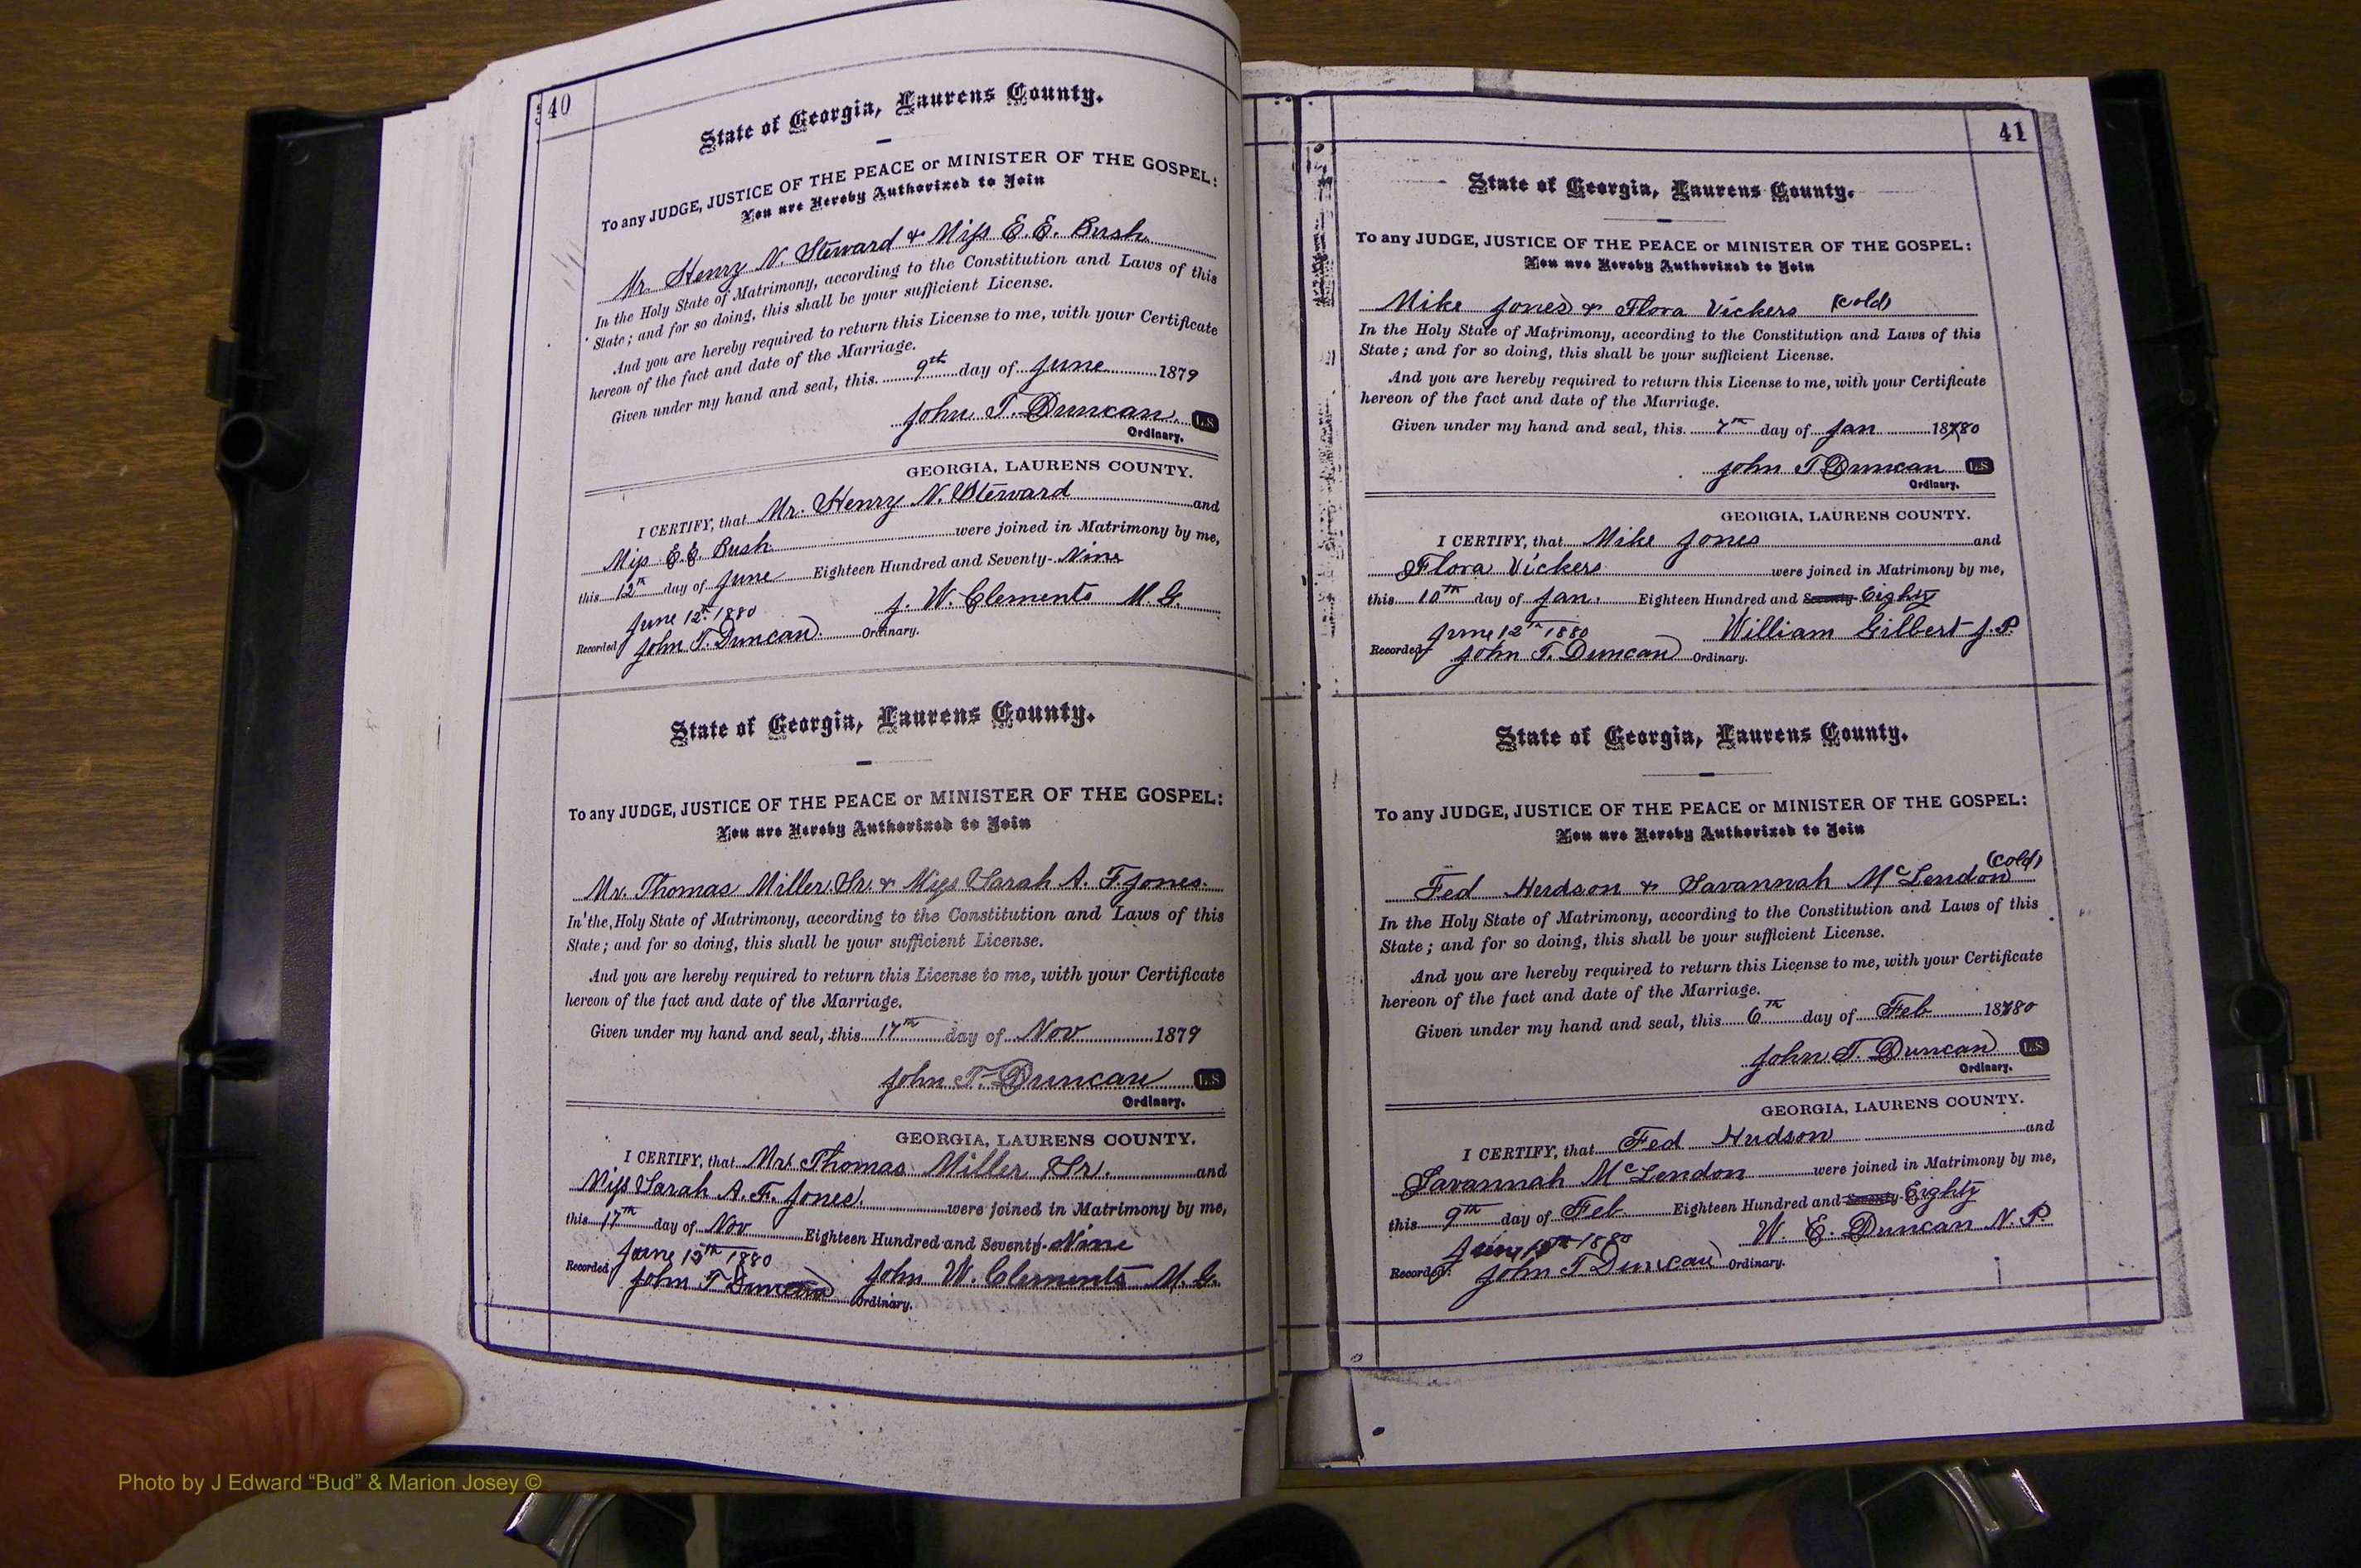 40
State of Georgia, Laurens County.
To any JUDGE, JUSTICE OF THE PEACE or MINISTER OF THE GOSPEL:
You are Hereby Authorized to Join
Mr. Henry N. Steward & Miss E. E. Bush
In the Holy State of Matrimony, according to the Constitution and Laws of this
State; and for so doing, this shall be your sufficient License.
And you are hereby required to return this License to me, with your Certificate
hereon of the fact and date of the Marriage.
Given under my hand and seal, this 9th day of June 1879
John T. Duncan L.S
Ordinary.
GEORGIA, LAURENS COUNTY.
I CERTIFY, that Mr. Henry N. Steward and
Miss E. E. Bush were joined in Matrimony by me,
this 12th day of June Eighteen Hundred and Seventy-Nine
June 12th 1880 J. W. Clements M. G.
Recorded John T. Duncan Ordinary.
State of Georgia, Laurens County.
To any JUDGE, JUSTICE OF THE PEACE or MINISTER OF THE GOSPEL:
You are Hereby Authorized to Join
Mr. Thomas Miller Sr. & Miss Sarah A. F. Jones.
In the Holy State of Matrimony, according to the Constitution and Laws of this
State; and for so doing, this shall be your sufficient License.
And you are hereby required to return this License to me, with your Certificate
hereon of the fact and date of the Marriage.
Given under my hand and seal, this 17th day of Nov 1879
John T. Duncan L.S
Ordinary.
GEORGIA, LAURENS COUNTY.
I CERTIFY, that Mr. Thomas Miller Sr. and
Miss Sarah A. F. Jones. were joined in Matrimony by me,
this 17th day of Nov Eighteen Hundred and Seventy-Nine
June 12th 1880
Recorded John T Duncan Ordinary. John W. Clements M. G.
41
State of Georgia, Laurens County.
To any JUDGE, JUSTICE OF THE PEACE or MINISTER OF THE GOSPEL:
You are Hereby Authorized to Join
Mike Jones & Flora Vickers (Cold)
In the Holy State of Matrimony, according to the Constitution and Laws of this
State; and for so doing, this shall be your sufficient License.
And you are hereby required to return this License to me, with your Certificate
hereon of the fact and date of the Marriage.
Given under my hand and seal, this 7th day of Jan 18780
John T Duncan L.S
Ordinary.
GEORGIA, LAURENS COUNTY.
I CERTIFY, that Mike Jones and
Flora Vickers were joined in Matrimony by me,
this 10th day of Jan. Eighteen Hundred and Seventy- Eighty
June 12th 1880 William Gilbert J. P.
Recorded John T. Duncan Ordinary.
State of Georgia, Laurens County.
To any JUDGE, JUSTICE OF THE PEACE or MINISTER OF THE GOSPEL:
You are Hereby Authorized to Join
Fed Hudson & Savannah McLendon (Cold)
In the Holy State of Matrimony, according to the Constitution and Laws of this
State; and for so doing, this shall be your sufficient License.
And you are hereby required to return this License to me, with your Certificate
hereon of the fact and date of the Marriage.
Given under my hand and seal, this 6th day of Feb 18780
John T. Duncan L.S
Ordinary.
GEORGIA, LAURENS COUNTY.
I CERTIFY, that Fed Hudson and
Savannah McLendon were joined in Matrimony by me,
this 9th day of Feb. Eighteen Hundred and Seventy- Eighty
June 1880 W. E. Duncan N. P.
Recorded John T Duncan Ordinary.
Photo by J Edward “Bud” & Marion Josey ©